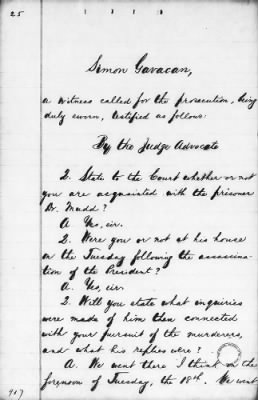 25
Simon Gavacan,
a witness called for the prosecution, being
duly sworn, testified as follows:
By the Judge Advocate
Q. State to the Court whether or not
you are acquainted with the prisoner
Dr. Mudd?
A. Yes, sir.
Q. Were you or not at his house
on the Tuesday following the assassina-
tion of the President?
A. Yes, sir.
Q. Will you state what inquiries
were made of him then connected
with your pursuit of the murderers,
and what his replies were?
A. We went there I think on the
forenoon of Tuesday, the 18th. We went
917